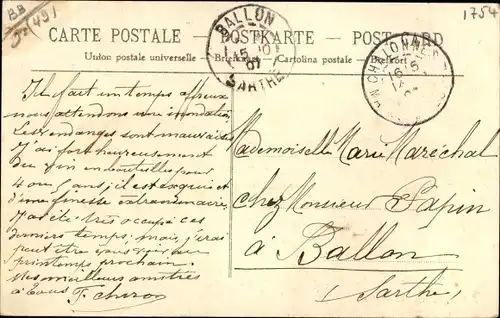 BB
(49)
1754
CARTE POSTALE — POSTKARTE — POST CARD
Union postale universelle — Briefkaart — Cartolina postale — Bref kort
BALLON
SARTHE
CHALONNES
Il fait un temps affreux
nous attendons une inondation
Les vendanges sont mauvaises
J'ai fort heureusement
du vin en bouteilles pour
4 ou 5 ans; il est exquis et
d'une finesse extraordinaire
J'ai été très occupé ces
derniers temps; mais, j'irai
peut être vous voir au
printemps prochain.
Mes meilleures amitiés
à tous
Mademoiselle Marie Maréchal
chez Monsieur Papin
à Ballon
(Sarthe)